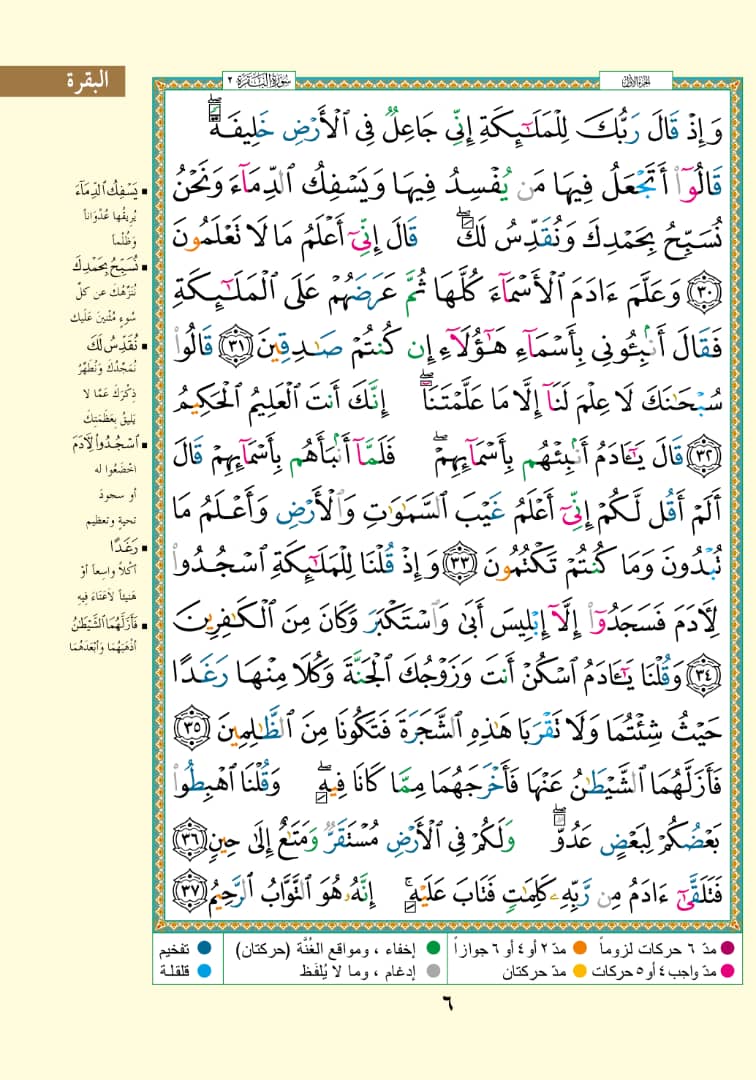 البقرة
سُورَةُ البَقَرَةِ ٢
الجزء الأول
وَإِذْ قَالَ رَبُّكَ لِلْمَلَٰٓئِكَةِ إِنِّى جَاعِلٌ فِى ٱلْأَرْضِ خَلِيفَةً ۖ
قَالُوٓا۟ أَتَجْعَلُ فِيهَا مَن يُفْسِدُ فِيهَا وَيَسْفِكُ ٱلدِّمَآءَ وَنَحْنُ
نُسَبِّحُ بِحَمْدِكَ وَنُقَدِّسُ لَكَ ۖ قَالَ إِنِّىٓ أَعْلَمُ مَا لَا تَعْلَمُونَ
﴿٣٠﴾ وَعَلَّمَ ءَادَمَ ٱلْأَسْمَآءَ كُلَّهَا ثُمَّ عَرَضَهُمْ عَلَى ٱلْمَلَٰٓئِكَةِ
فَقَالَ أَنۢبِـُٔونِى بِأَسْمَآءِ هَٰٓؤُلَآءِ إِن كُنتُمْ صَٰدِقِينَ ﴿٣١﴾ قَالُوا۟
سُبْحَٰنَكَ لَا عِلْمَ لَنَآ إِلَّا مَا عَلَّمْتَنَآ ۖ إِنَّكَ أَنتَ ٱلْعَلِيمُ ٱلْحَكِيمُ
﴿٣٢﴾ قَالَ يَٰٓـَٔادَمُ أَنۢبِئْهُم بِأَسْمَآئِهِمْ ۖ فَلَمَّآ أَنۢبَأَهُم بِأَسْمَآئِهِمْ قَالَ
أَلَمْ أَقُل لَّكُمْ إِنِّىٓ أَعْلَمُ غَيْبَ ٱلسَّمَٰوَٰتِ وَٱلْأَرْضِ وَأَعْلَمُ مَا
تُبْدُونَ وَمَا كُنتُمْ تَكْتُمُونَ ﴿٣٣﴾ وَإِذْ قُلْنَا لِلْمَلَٰٓئِكَةِ ٱسْجُدُوا۟
لِـَٔادَمَ فَسَجَدُوٓا۟ إِلَّآ إِبْلِيسَ أَبَىٰ وَٱسْتَكْبَرَ وَكَانَ مِنَ ٱلْكَٰفِرِينَ
﴿٣٤﴾ وَقُلْنَا يَٰٓـَٔادَمُ ٱسْكُنْ أَنتَ وَزَوْجُكَ ٱلْجَنَّةَ وَكُلَا مِنْهَا رَغَدًا
حَيْثُ شِئْتُمَا وَلَا تَقْرَبَا هَٰذِهِ ٱلشَّجَرَةَ فَتَكُونَا مِنَ ٱلظَّٰلِمِينَ ﴿٣٥﴾
فَأَزَلَّهُمَا ٱلشَّيْطَٰنُ عَنْهَا فَأَخْرَجَهُمَا مِمَّا كَانَا فِيهِ ۖ وَقُلْنَا ٱهْبِطُوا۟
بَعْضُكُمْ لِبَعْضٍ عَدُوٌّ ۖ وَلَكُمْ فِى ٱلْأَرْضِ مُسْتَقَرٌّ وَمَتَٰعٌ إِلَىٰ حِينٍ ﴿٣٦﴾
فَتَلَقَّىٰٓ ءَادَمُ مِن رَّبِّهِۦ كَلِمَٰتٍ فَتَابَ عَلَيْهِ ۚ إِنَّهُۥ هُوَ ٱلتَّوَّابُ ٱلرَّحِيمُ ﴿٣٧﴾
■ يَسْفِكُ ٱلدِّمَآءَ
يُريقُها عُدْوَاناً
وَظُلْماً
■ نُسَبِّحُ بِحَمْدِكَ
نُنَزِّهُكَ عن كلِّ
سُوءٍ مُثْنينَ عَليك
■ نُقَدِّسُ لَكَ
نُمَجِّدُكَ وَنُطَهِّرُ
ذِكْرَكَ عَمَّا لا
يَليقُ بِعَظَمَتِكَ
■ ٱسْجُدُوا۟ لِـَٔادَمَ
اخْضَعُوا له
أو سجودَ
تحيةٍ وتعظيم
■ رَغَدًا
أكْلاً واسِعاً أوْ
هَنيئاً لاَعَنَاءَ فيهِ
■ فَأَزَلَّهُمَا ٱلشَّيْطَٰنُ
أذْهَبَهُمَا وَأبْعَدَهُمَا
مدّ ٦ حركات لزوماً
مدّ ٢ أو ٤ أو ٦ جوازاً
إخفاء ، ومواقع الغُنَّة (حركتان)
تفخيم
مدّ واجب ٤ أو ٥ حركات
مدّ حركتان
إدغام ، وما لا يُلفَظ
قلقلة
٦